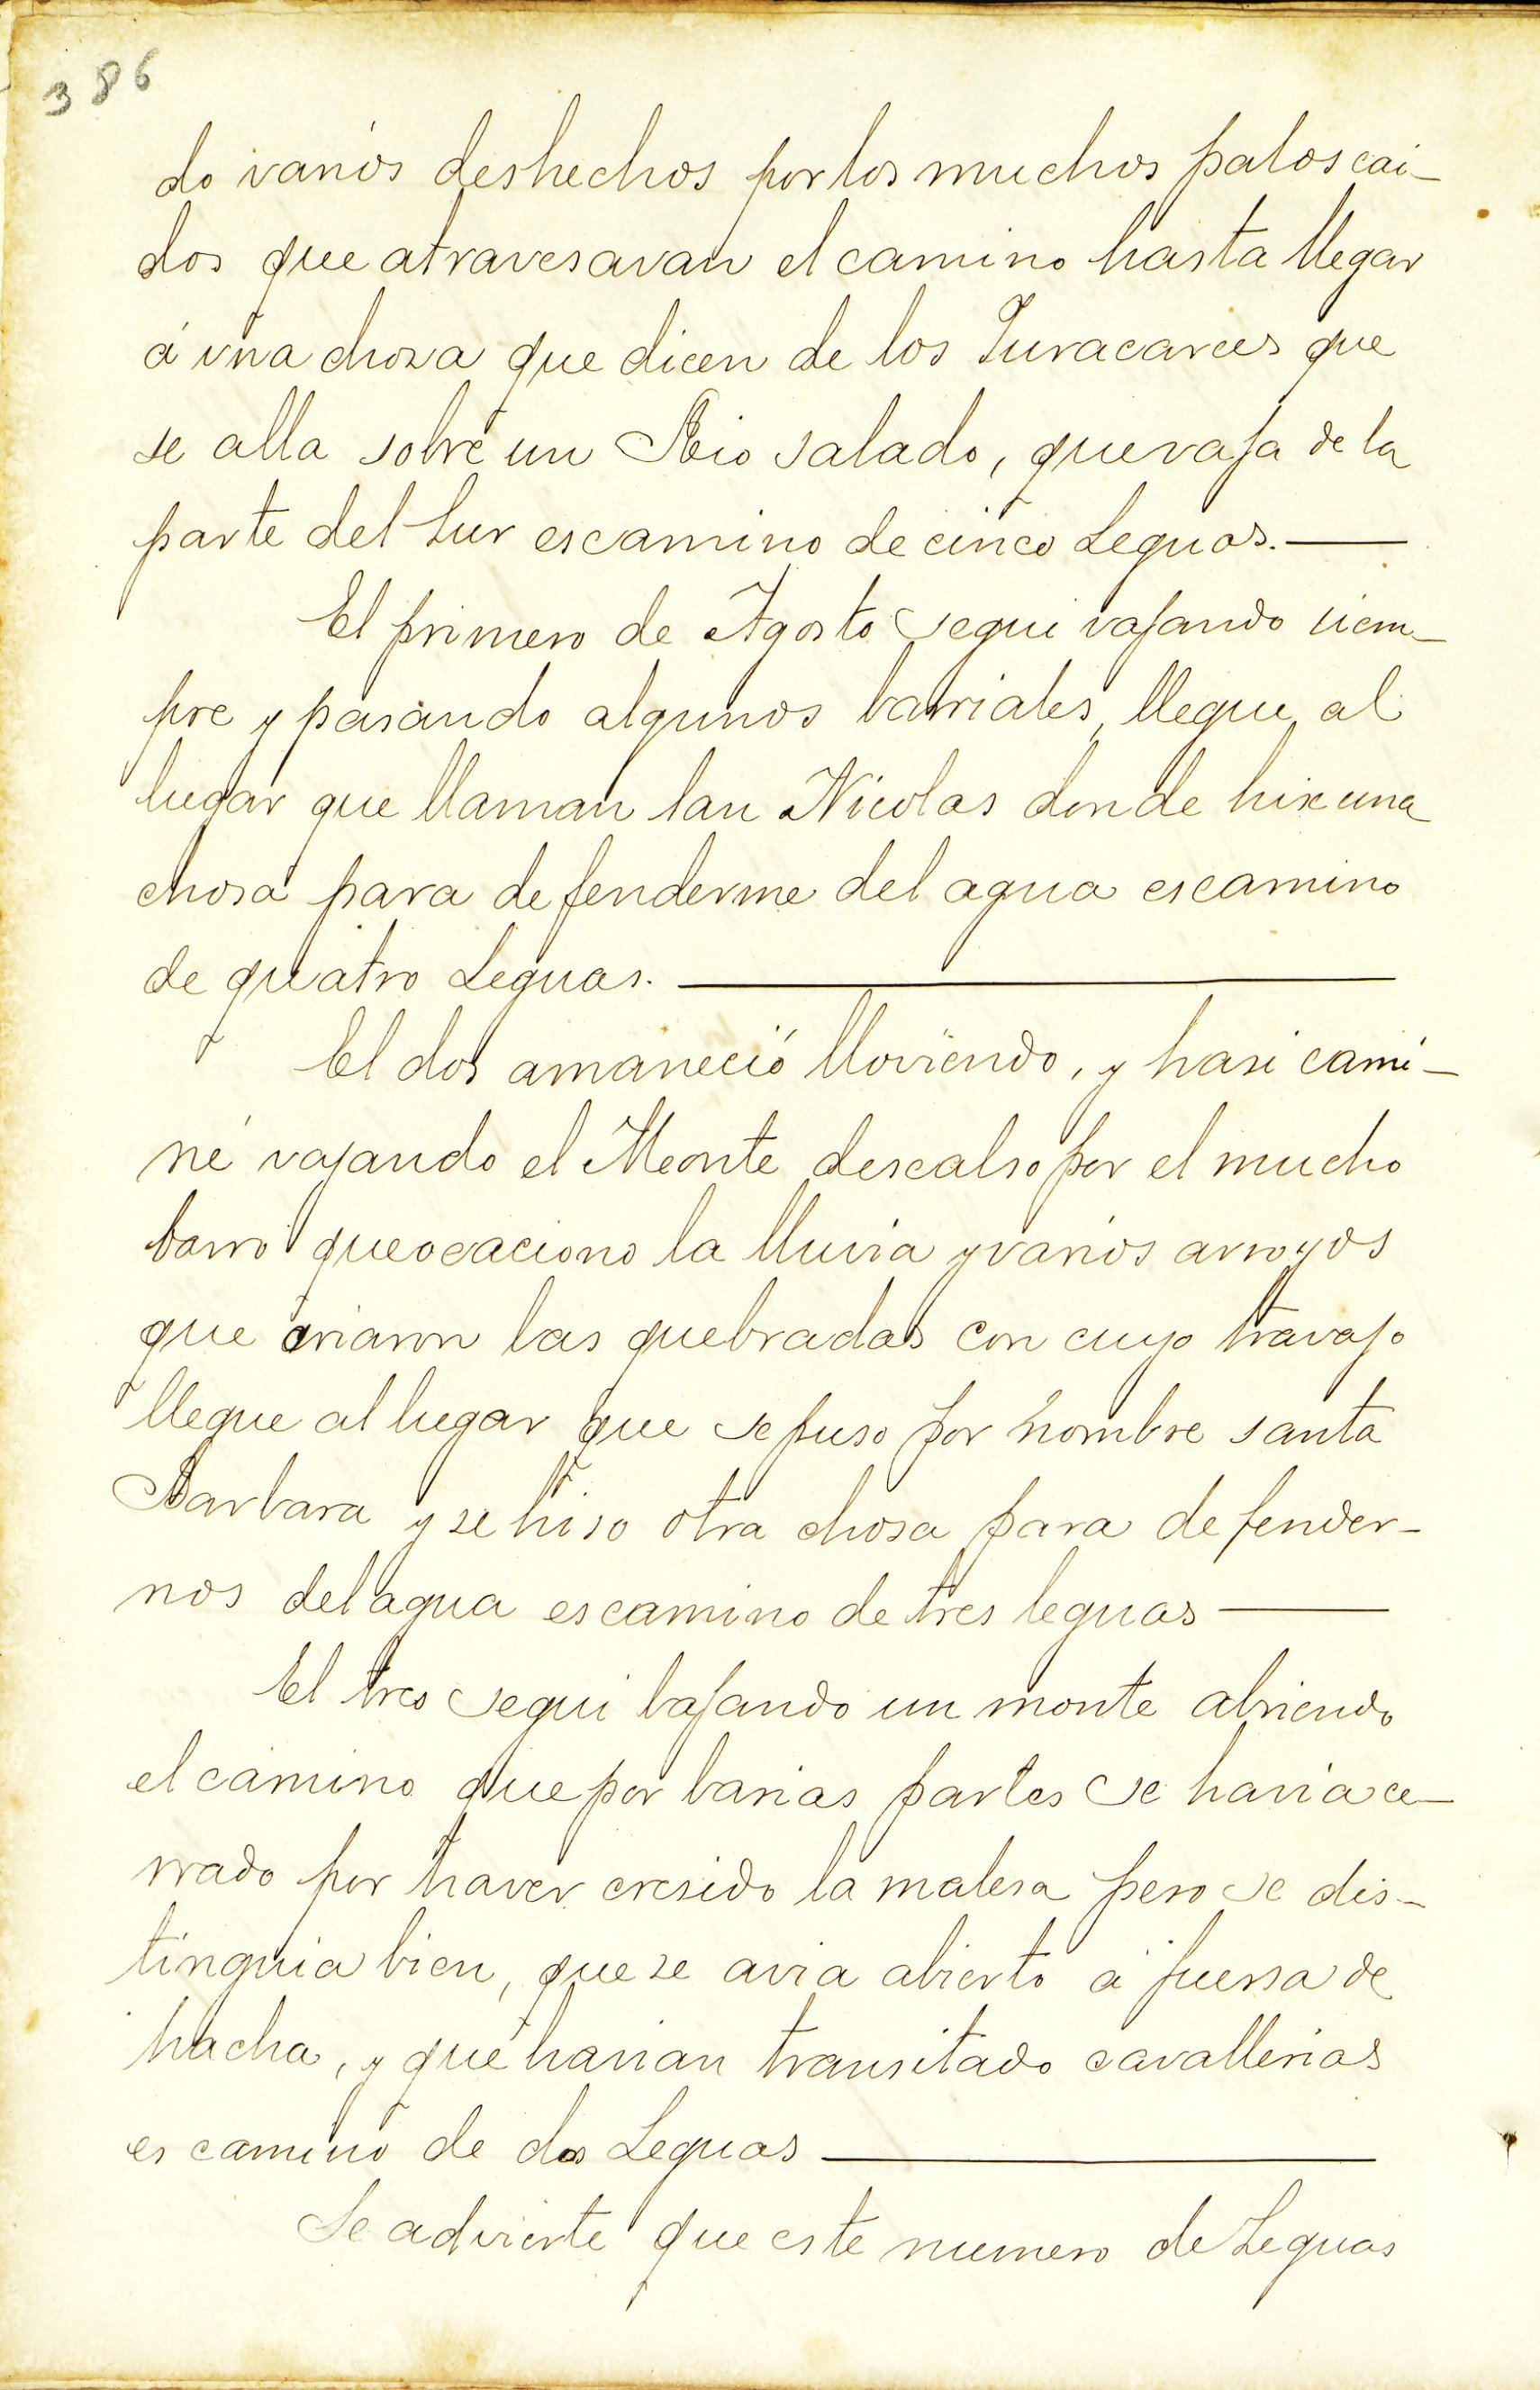 386
do varios deshechos por los muchos palos cai-
dos que atravesavan el camino hasta llegar
á una chosa que dicen de los Yuracarees que
se alla sobre un Rio salado, que vaja de la
parte del Sur es camino de cinco Leguas.—
El primero de Agosto segui vajando siem-
pre y pasando algunos barriales, llegue al
lugar que llaman San Nicolas donde hise una
chosa para defenderme del agua es camino
de quatro Leguas.—
El dos amaneció lloviendo, y hasi cami-
né vajando el Monte descalso por el mucho
barro que ocaciono la lluvia y varios arroyos
que criaron las quebradas con cuyo travajo
llegue al lugar que se puso por nombre santa
Barbara y se hiso otra chosa para defender-
nos del agua es camino de tres leguas—
El tres segui bajando un monte abriendo
el camino que por barias partes se havia ce-
rrado por haver cresido la malesa pero se dis-
tinguia bien, que se avia abierto á fuersa de
hacha, y que havian transitado cavallerias
es camino de dos Leguas—
Se advierte que este numero de Leguas